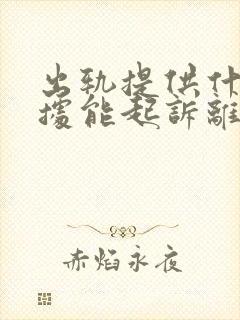 出轨提供什
據能起訴離
赤焰永夜